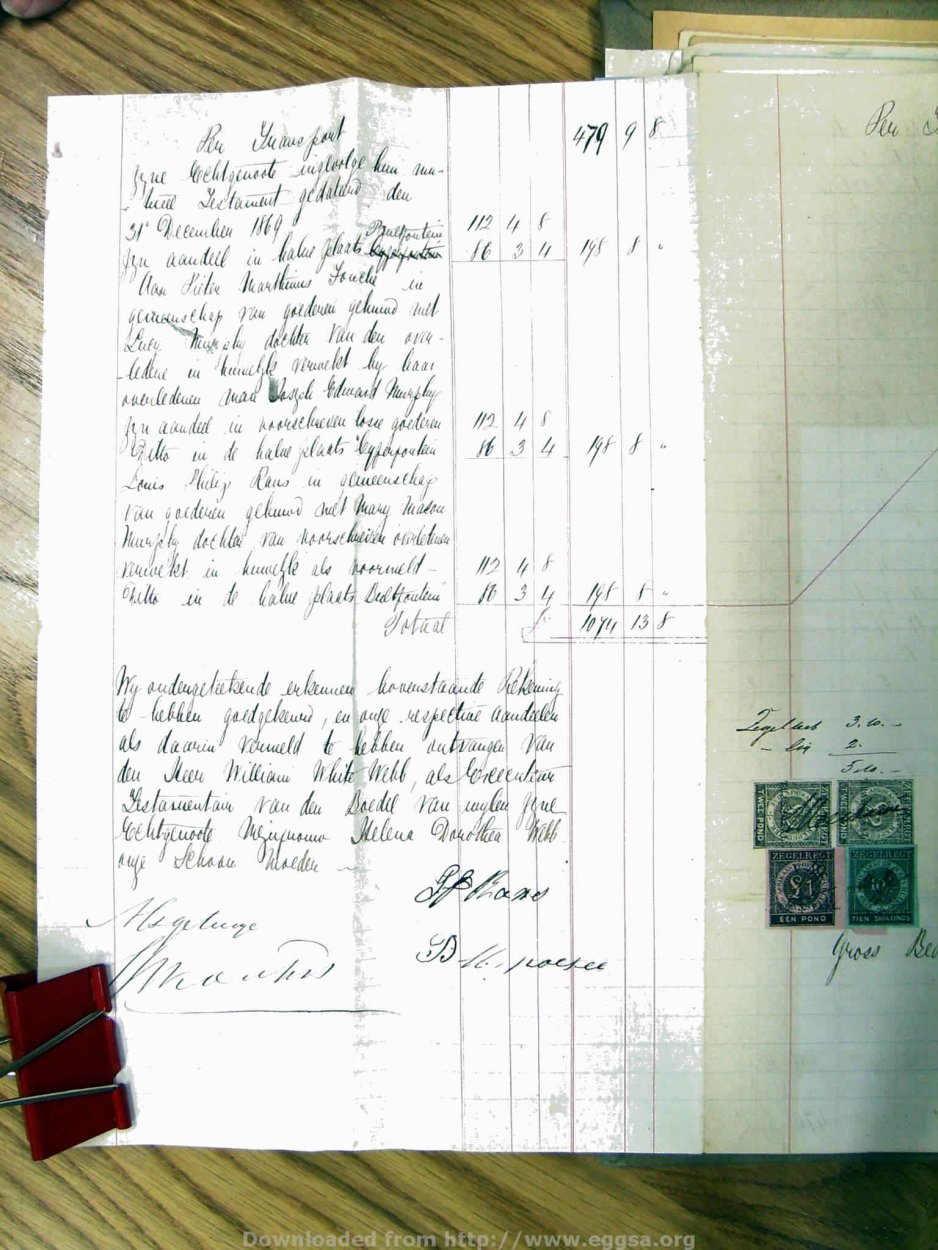 Per Transport 479 9 8
zyne Echtgenoote ingevolge hun mu-
tueel Testament gedateerd den
31e December 1869 112 4 8
zyn aandeel in halve plaats 86 3 4 198 8 "
Aan Pieter Marthinus Fouché in
gemeenschap van goederen gehuwd met
Lucy Murphy dochter van den over-
ledene in huwelyk verwekt by haar
overledenen man Joseph Edward Murphy
zyn aandeel in voorschreven losse goederen 112 4 8
Ditto in de halve plaats 86 3 4 198 8 "
Louis Philip Raus in gemeenschap
van goederen gehuwd met Mary Mason
Murphy dochter van voorschreven overledenen
verwekt in huwelyk als voormeld - 112 4 8
Ditto in de halve plaats 86 3 4 198 8 "
Totaal £ 1074 13 8
Wy ondergeteekende erkennen bovenstaande Rekening
te hebben goedgekeurd, en onze respective aandeelen
als daarin vermeld te hebben ontvangen van
den Heer William White Webb, als Executeur
Testamentair van den Boedel van wylen zyne
Echtgenoote Mejufvrouw Helena Dorothea Webb
onze Schoon Moeder
Als getuige
Per
3.10.-
2.
5.10.-
TWEE POND
TWEE POND
ZEGELREGT
£1
EEN POND
ZEGELREGT
10/
TIEN SHILLINGS
Gross
Downloaded from http://www.eggsa.org